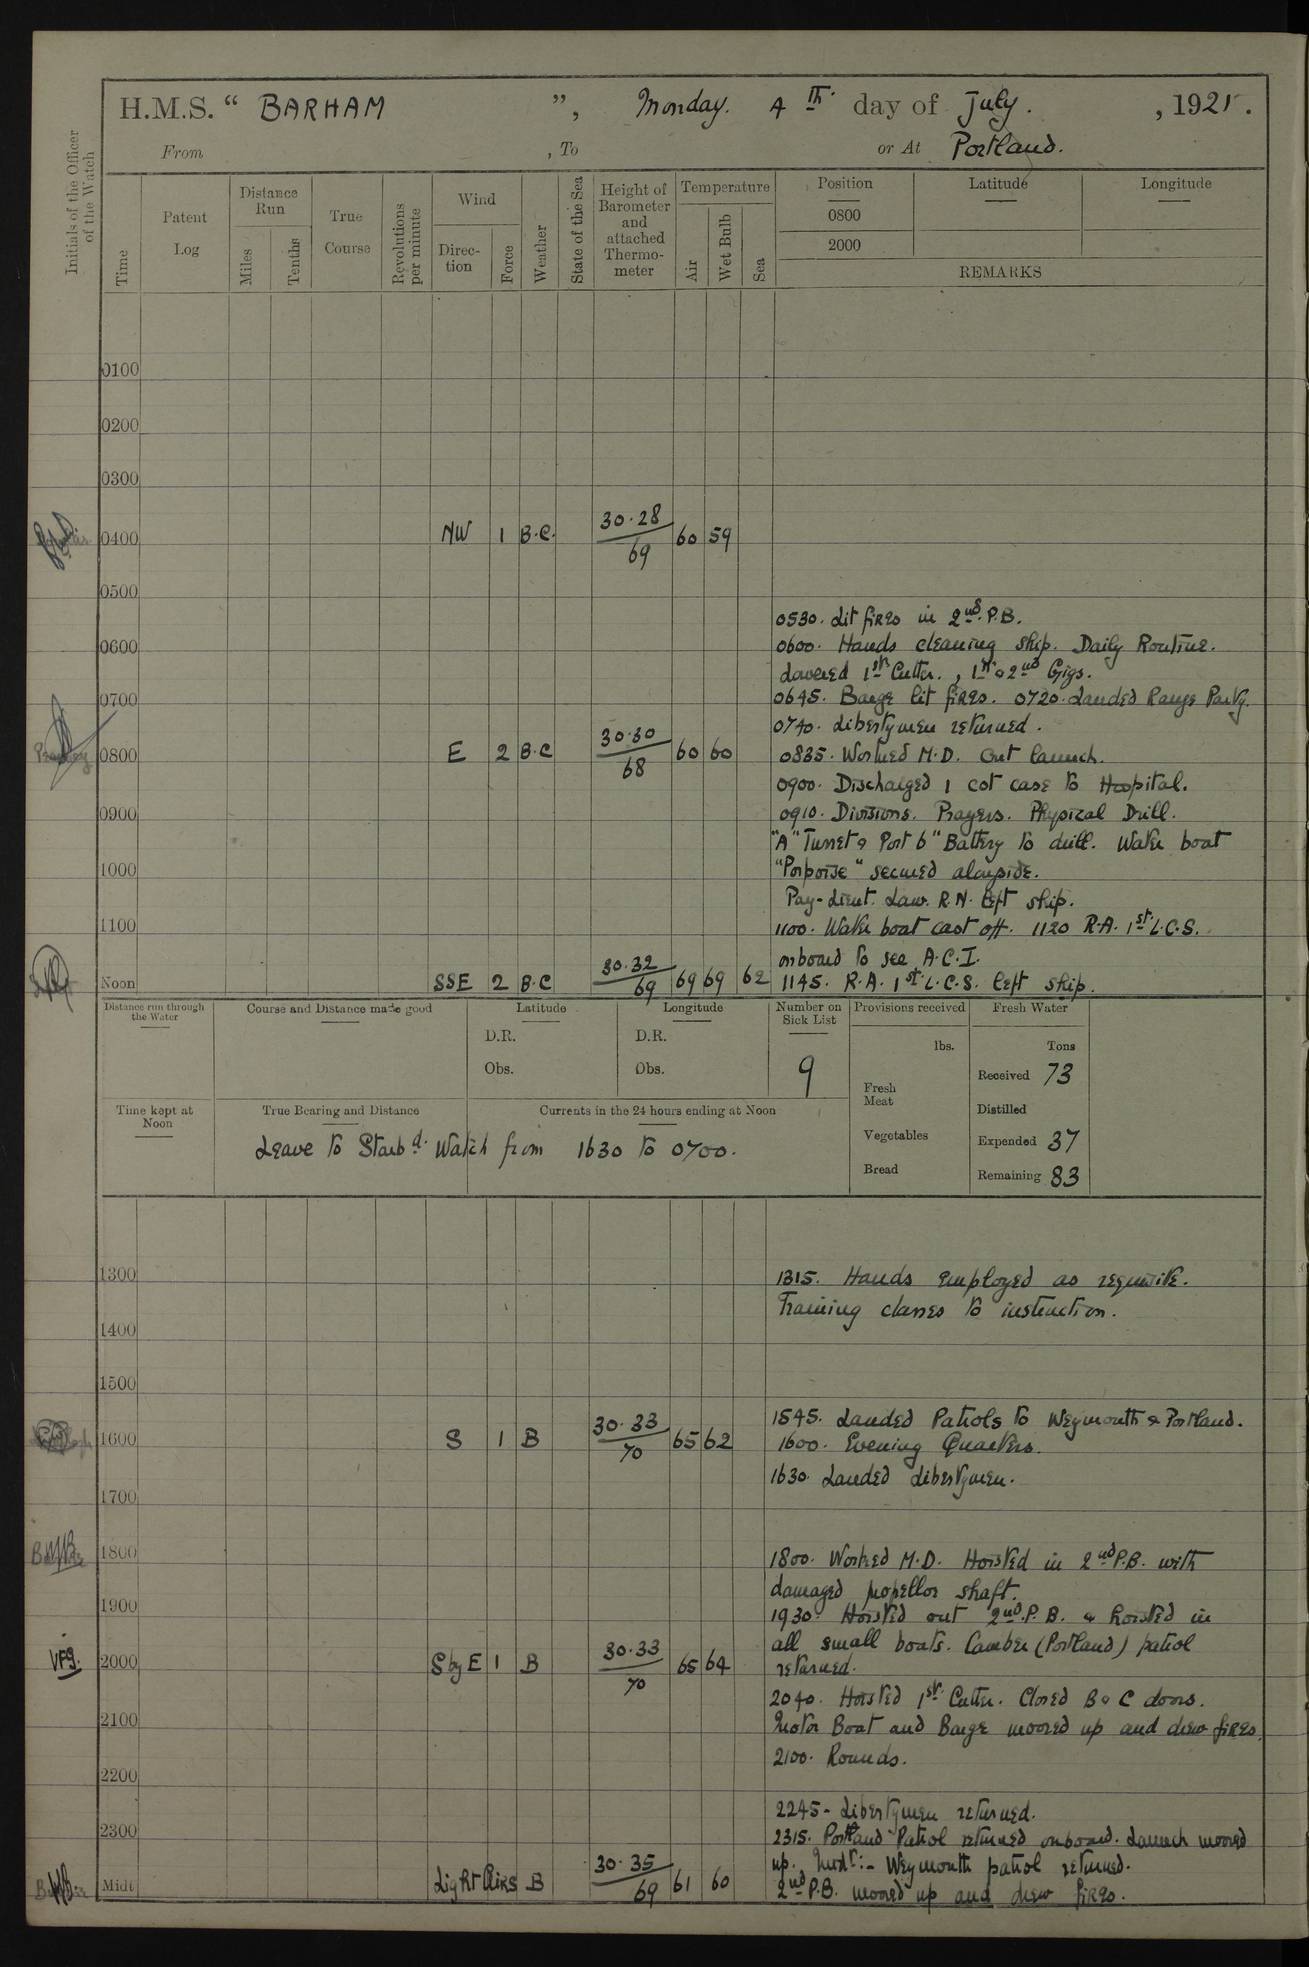 H.M.S. “ BARHAM ”, Monday. 4th. day of July. , 1921.
From , To or At Portland.
Initials of the Officer of the Watch
Time
Patent Log
Distance Run
Miles
Tenths
True Course
Revolutions per minute
Wind
Direc-tion
Force
Weather
State of the Sea
Height of Barometer and attached Thermo-meter
Temperature
Air
Wet Bulb
Sea
Position Latitude Longitude
0800
2000
REMARKS
0100
0200
0300
0400 NW 1 B.C. 30.28 / 69 60 59
0500
0530. Lit fires in 2nd. P.B.
0600 0600. Hands cleaning ship. Daily Routine.
Lowered 1st Cutter., 1st & 2nd Gigs.
0700 0645. Barge lit fires. 0720. Landed Range Party.
0740. Libertymen returned.
0800 E 2 B.C 30.30 / 68 60 60 0835. Worked M.D. Out launch.
0900. Discharged 1 cot case to Hospital.
0900 0910. Divisions. Prayers. Physical Drill.
"A" Turret & Port 6" Battery to drill. Water boat
1000 "Porpoise" secured alongside.
Pay-Lieut. Law. R.N. left ship.
1100 1100. Water boat cast off. 1120 R.A. 1st. L.C.S.
onboard to see A.C.I.
Noon SSE 2 B.C 30.32 / 69 69 69 62 1145. R.A. 1st L.C.S. left ship.
Distance run through the Water
Course and Distance made good
Latitude
D.R.
Obs.
Longitude
D.R.
Obs.
Number on Sick List
9
Provisions received
lbs.
Fresh Meat
Vegetables
Bread
Fresh Water
Tons
Received 73
Distilled
Expended 37
Remaining 83
Time kept at Noon
True Bearing and Distance
Currents in the 24 hours ending at Noon
Leave to Starbd. Watch from 1630 to 0700.
1300 1315. Hands employed as requisite.
Training classes to instruction.
1400
1500
1545. Landed Patrols to Weymouth & Portland.
1600 S 1 B 30.33 / 70 65 62 1600. Evening Quarters.
1630. Landed Libertymen.
1700
1800 1800. Worked M.D. Hoisted in 2nd P.B. with
damaged propellor shaft.
1900 1930. Hoisted out 2nd. P.B. & hoisted in
all small boats. Camber (Portland) patrol
VFG. 2000 S by E 1 B 30.33 / 70 65 64 returned.
2040. Hoisted 1st. Cutter. Closed B & C doors.
2100 Motor Boat and Barge moored up and drew fires.
2100. Rounds.
2200
2245- Libertymen returned.
2300 2315. Portland Patrol returned onboard. Launch moored
up. Midt:- Weymouth patrol returned.
Midt Light Airs B 30.35 / 69 61 60 2nd P.B. moored up and drew fires.